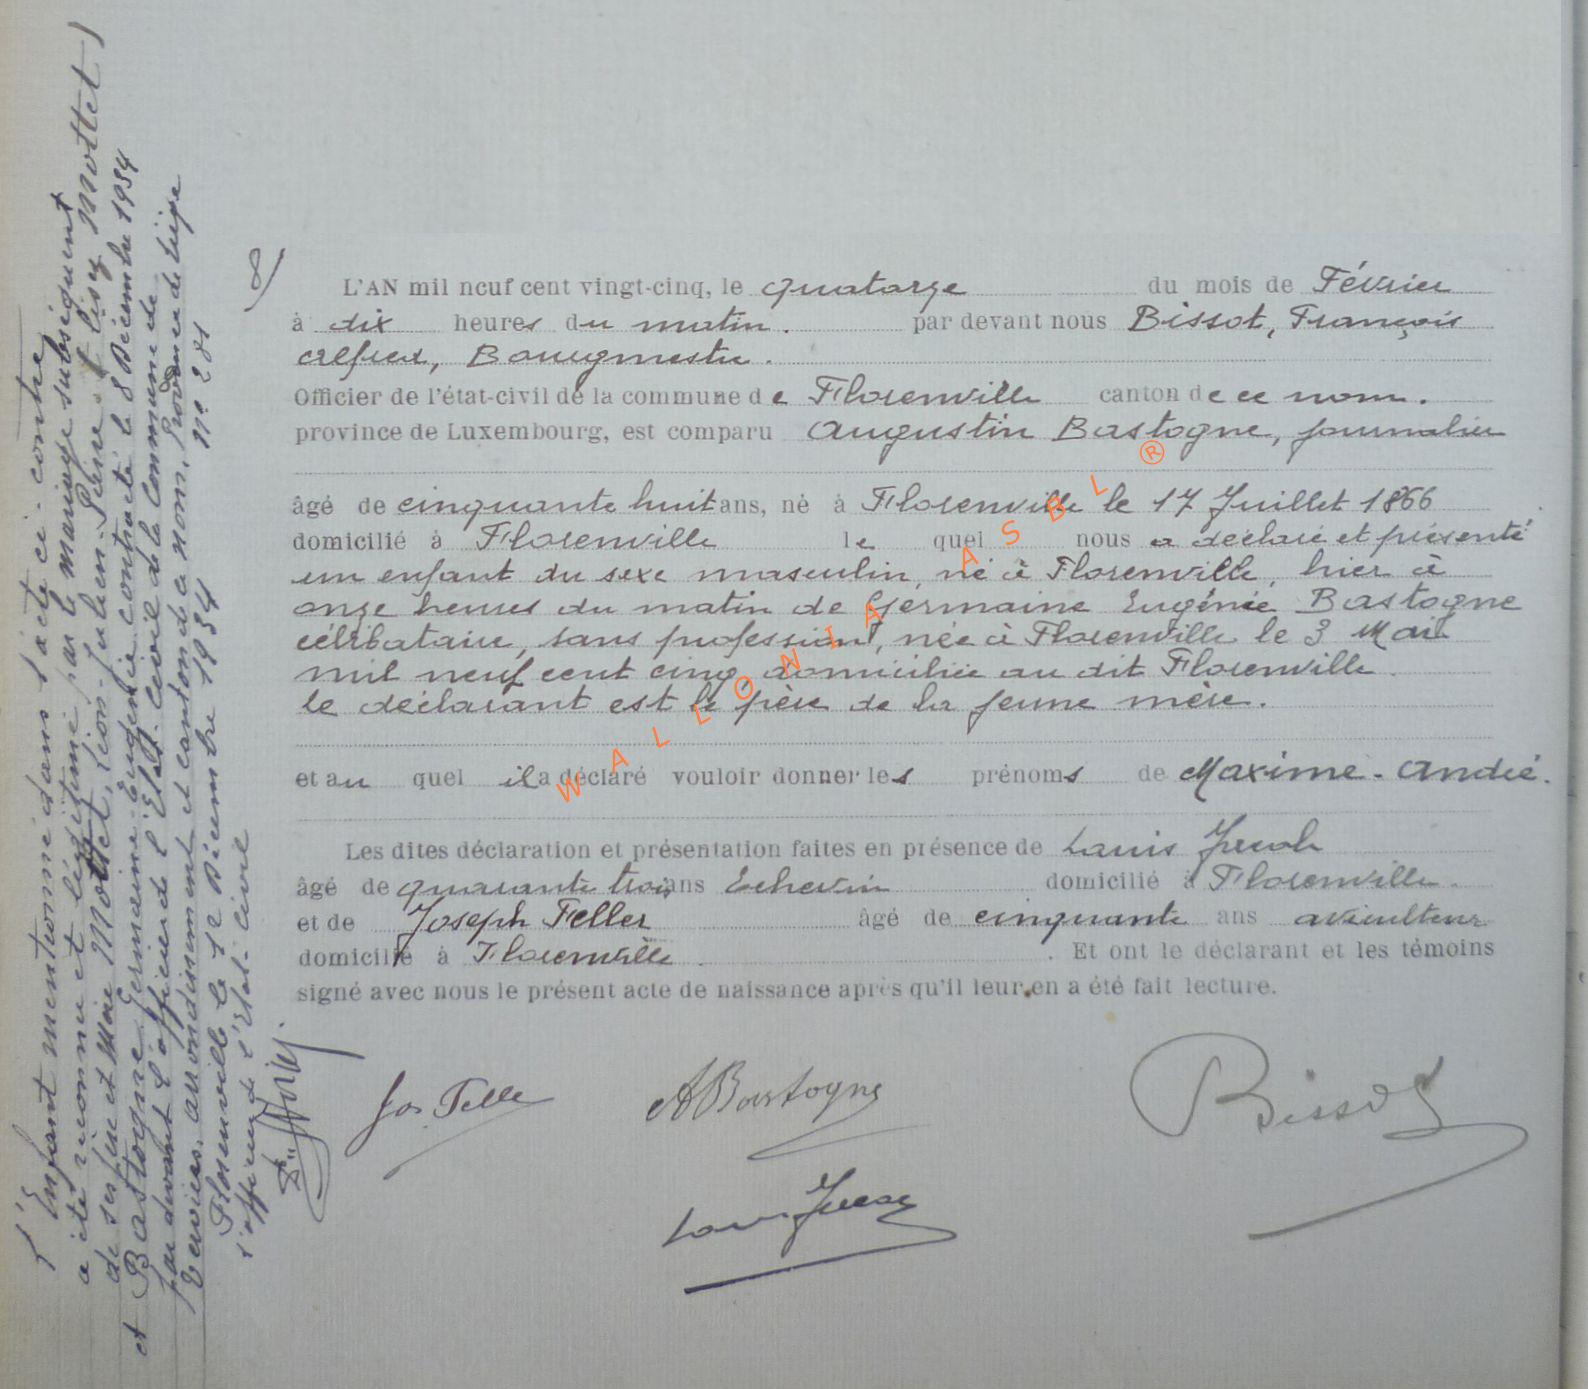 8)
L'AN mil neuf cent vingt-cinq, le quatorze du mois de Février
à dix heures du matin. par devant nous Bissot, François
Alfred, Bourgmestre.
Officier de l'état-civil de la commune de Florenville canton de ce nom.
province de Luxembourg, est comparu Augustin Bastogne, journalier
âgé de cinquante huit ans, né à Florenville le 17 Juillet 1866
domicilié à Florenville le quel nous a déclaré et présenté
un enfant du sexe masculin, né à Florenville, hier à
onze heures du matin de Germaine Eugénie Bastogne
célibataire, sans profession, née à Florenville le 3 Mai
mil neuf cent cinq, domiciliée au dit Florenville.
le déclarant est le père de la jeune mère.
et au quel il a déclaré vouloir donner les prénoms de Maxime-André.
Les dites déclaration et présentation faites en présence de Louis
âgé de quarante trois ans Echevin domicilié à Florenville.
et de Joseph Feller âgé de cinquante ans aviculteur
domicilié à Florenville. Et ont le déclarant et les témoins
signé avec nous le présent acte de naissance après qu'il leur en a été fait lecture.
Jos. Feller
ABastogne
Bissot
Louis
L'Enfant mentionné dans l'acte ci-contre
a été reconnu et légitimé par le mariage subséquent
de ses père et Mère Mottet, Léon-Julien-Pierre (lisez Mottet)
et Bastogne Germaine Eugénie contracté le 8 Décembre 1934
par devant l'officier de l'Etat-civil de la Commune de
Verviers, arrondissement et canton de ce nom, Province de Liége
Florenville le 12 Décembre 1934 N° 281
l'officier de l'Etat-Civil
WALLONIA ASBL ®